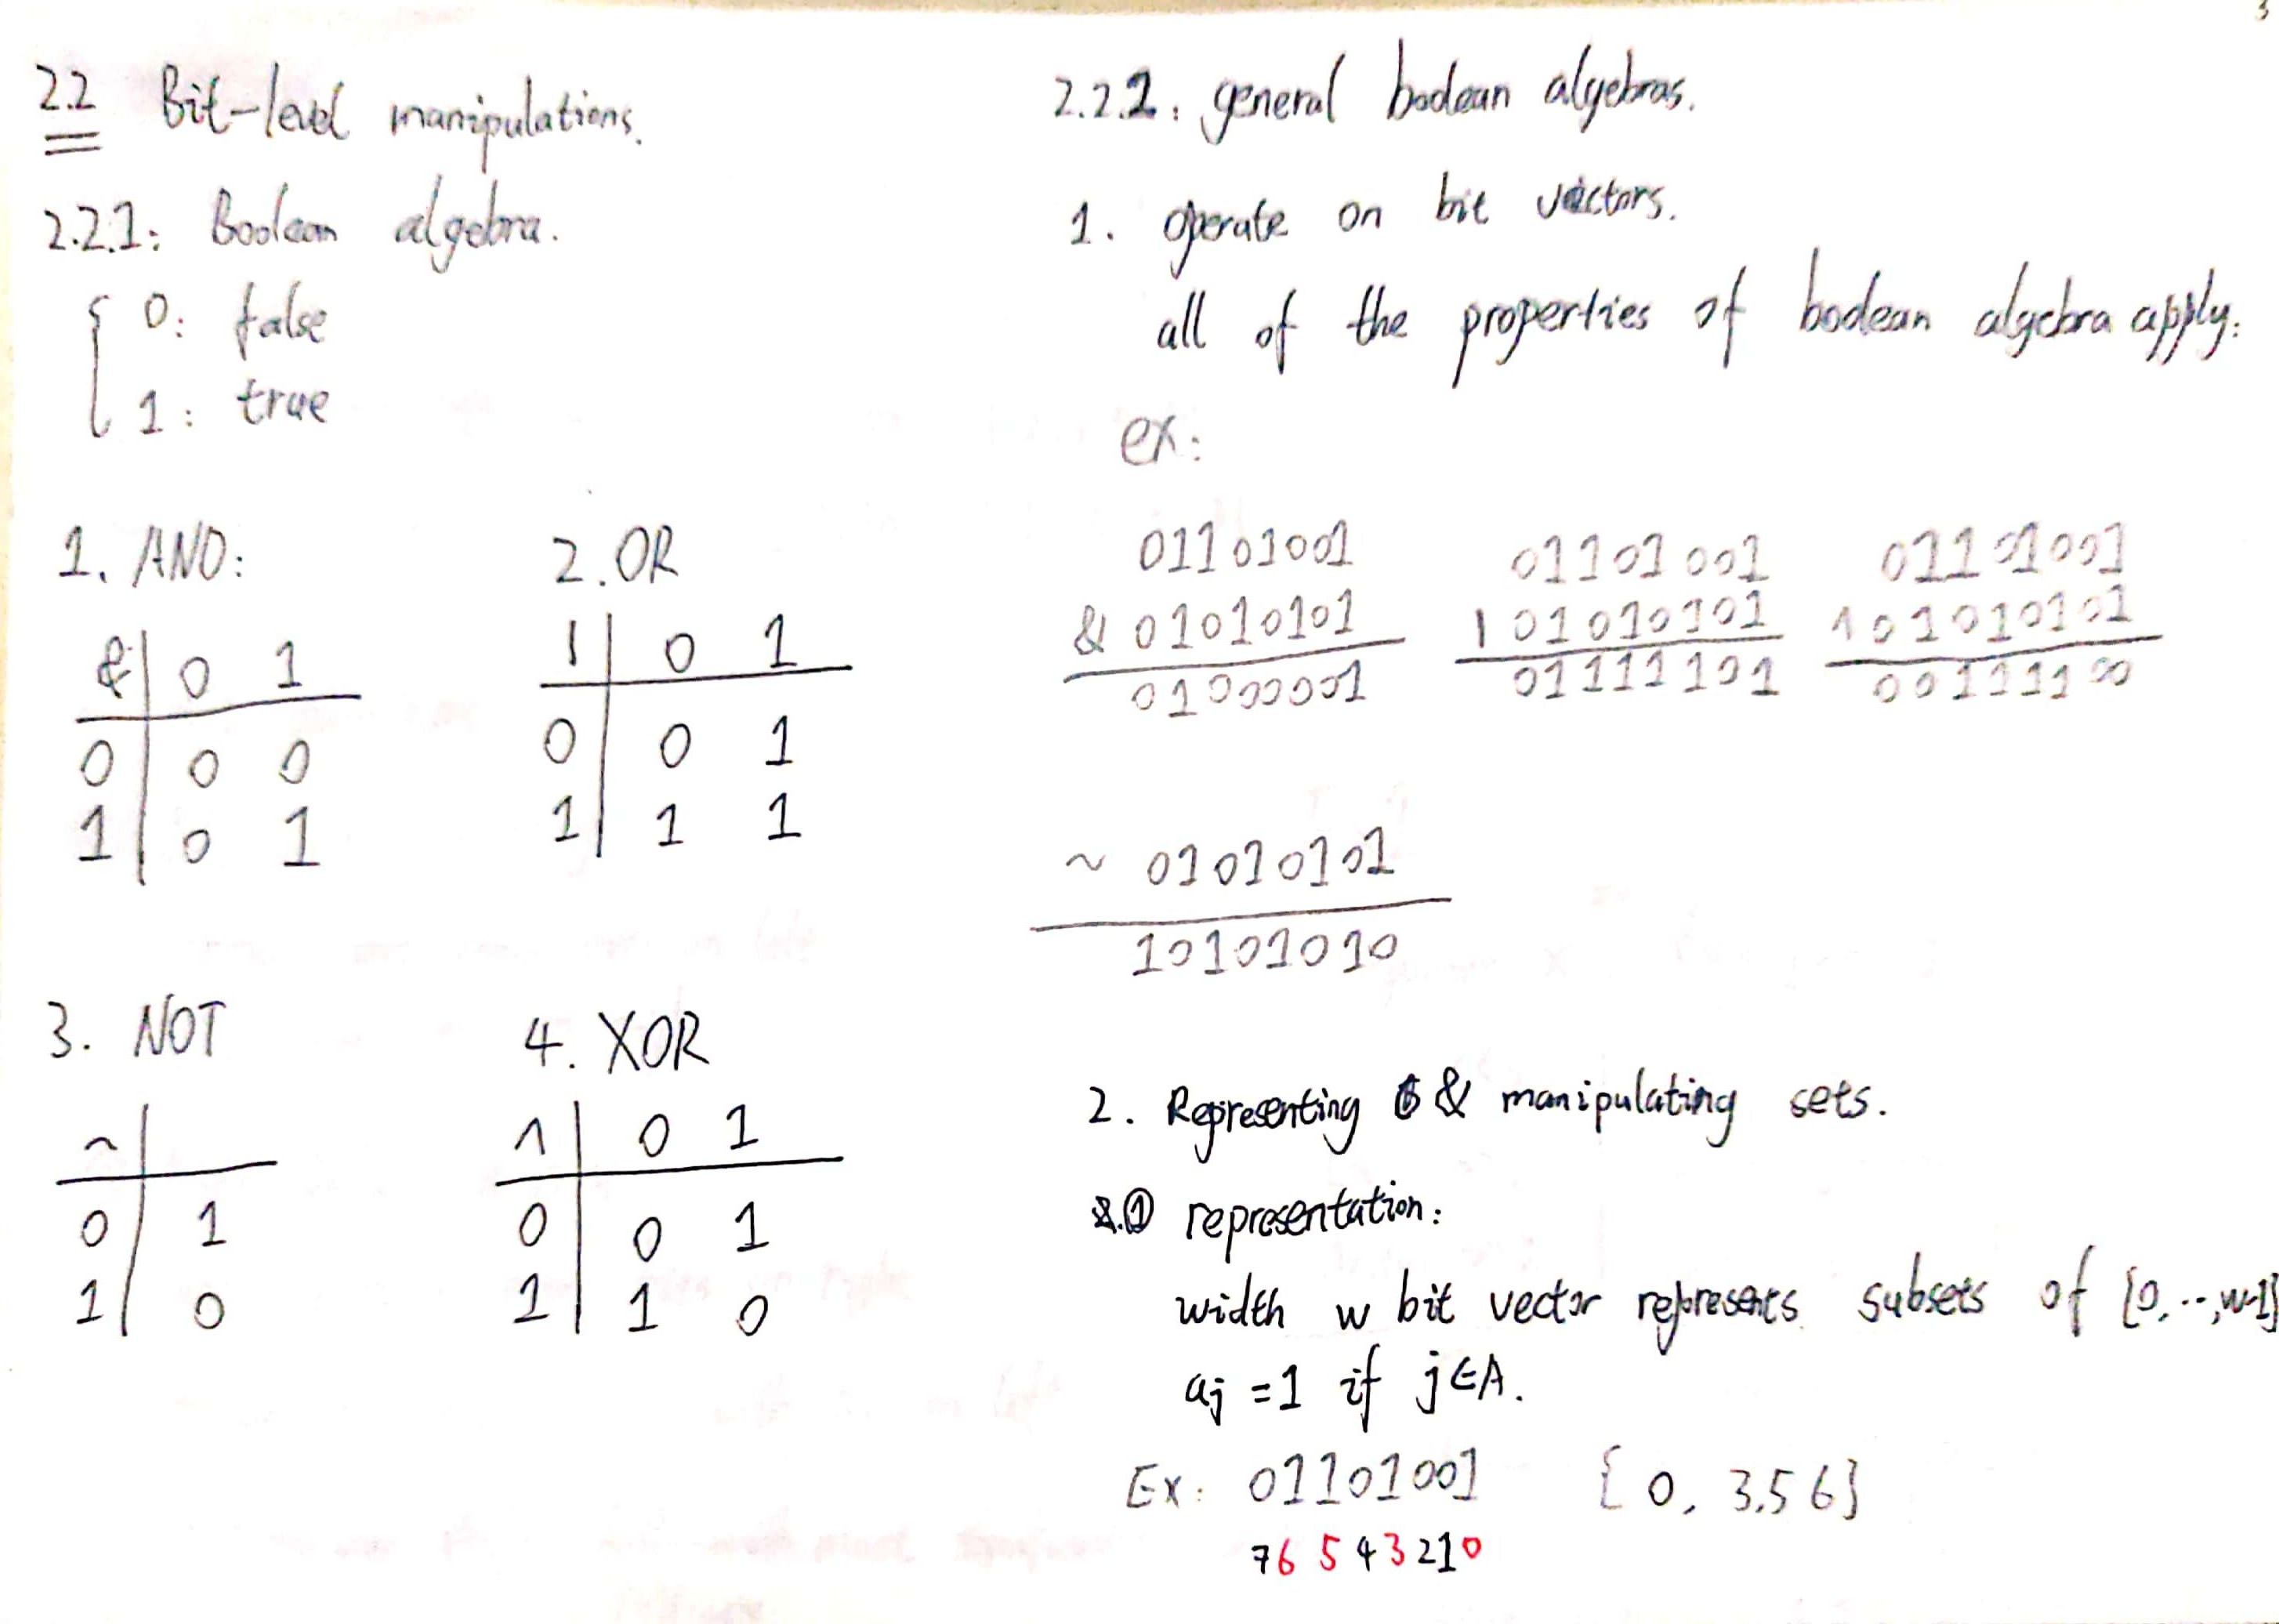 3
2.2 Bit-level manipulations.
2.2.1: Boolean algebra.
0: false
1: true
1. AND:
& 0 1
0 0 0
1 0 1
2. OR
| 0 1
0 0 1
1 1 1
3. NOT
~
0 1
1 0
4. XOR
^ 0 1
0 0 1
1 1 0
2.2.2: general boolean algebras.
1. operate on bit vectors.
all of the properties of boolean algebra apply:
ex:
01101001
& 01010101
01000001
01101001
| 01010101
01111101
01101001
^ 01010101
00111100
~ 01010101
10101010
2. Representing & manipulating sets.
① representation:
width w bit vector represents subsets of {0, .., w-1}
aj = 1 if j ∈ A.
Ex: 01101001 { 0, 3, 5 6}
7 6 5 4 3 2 1 0